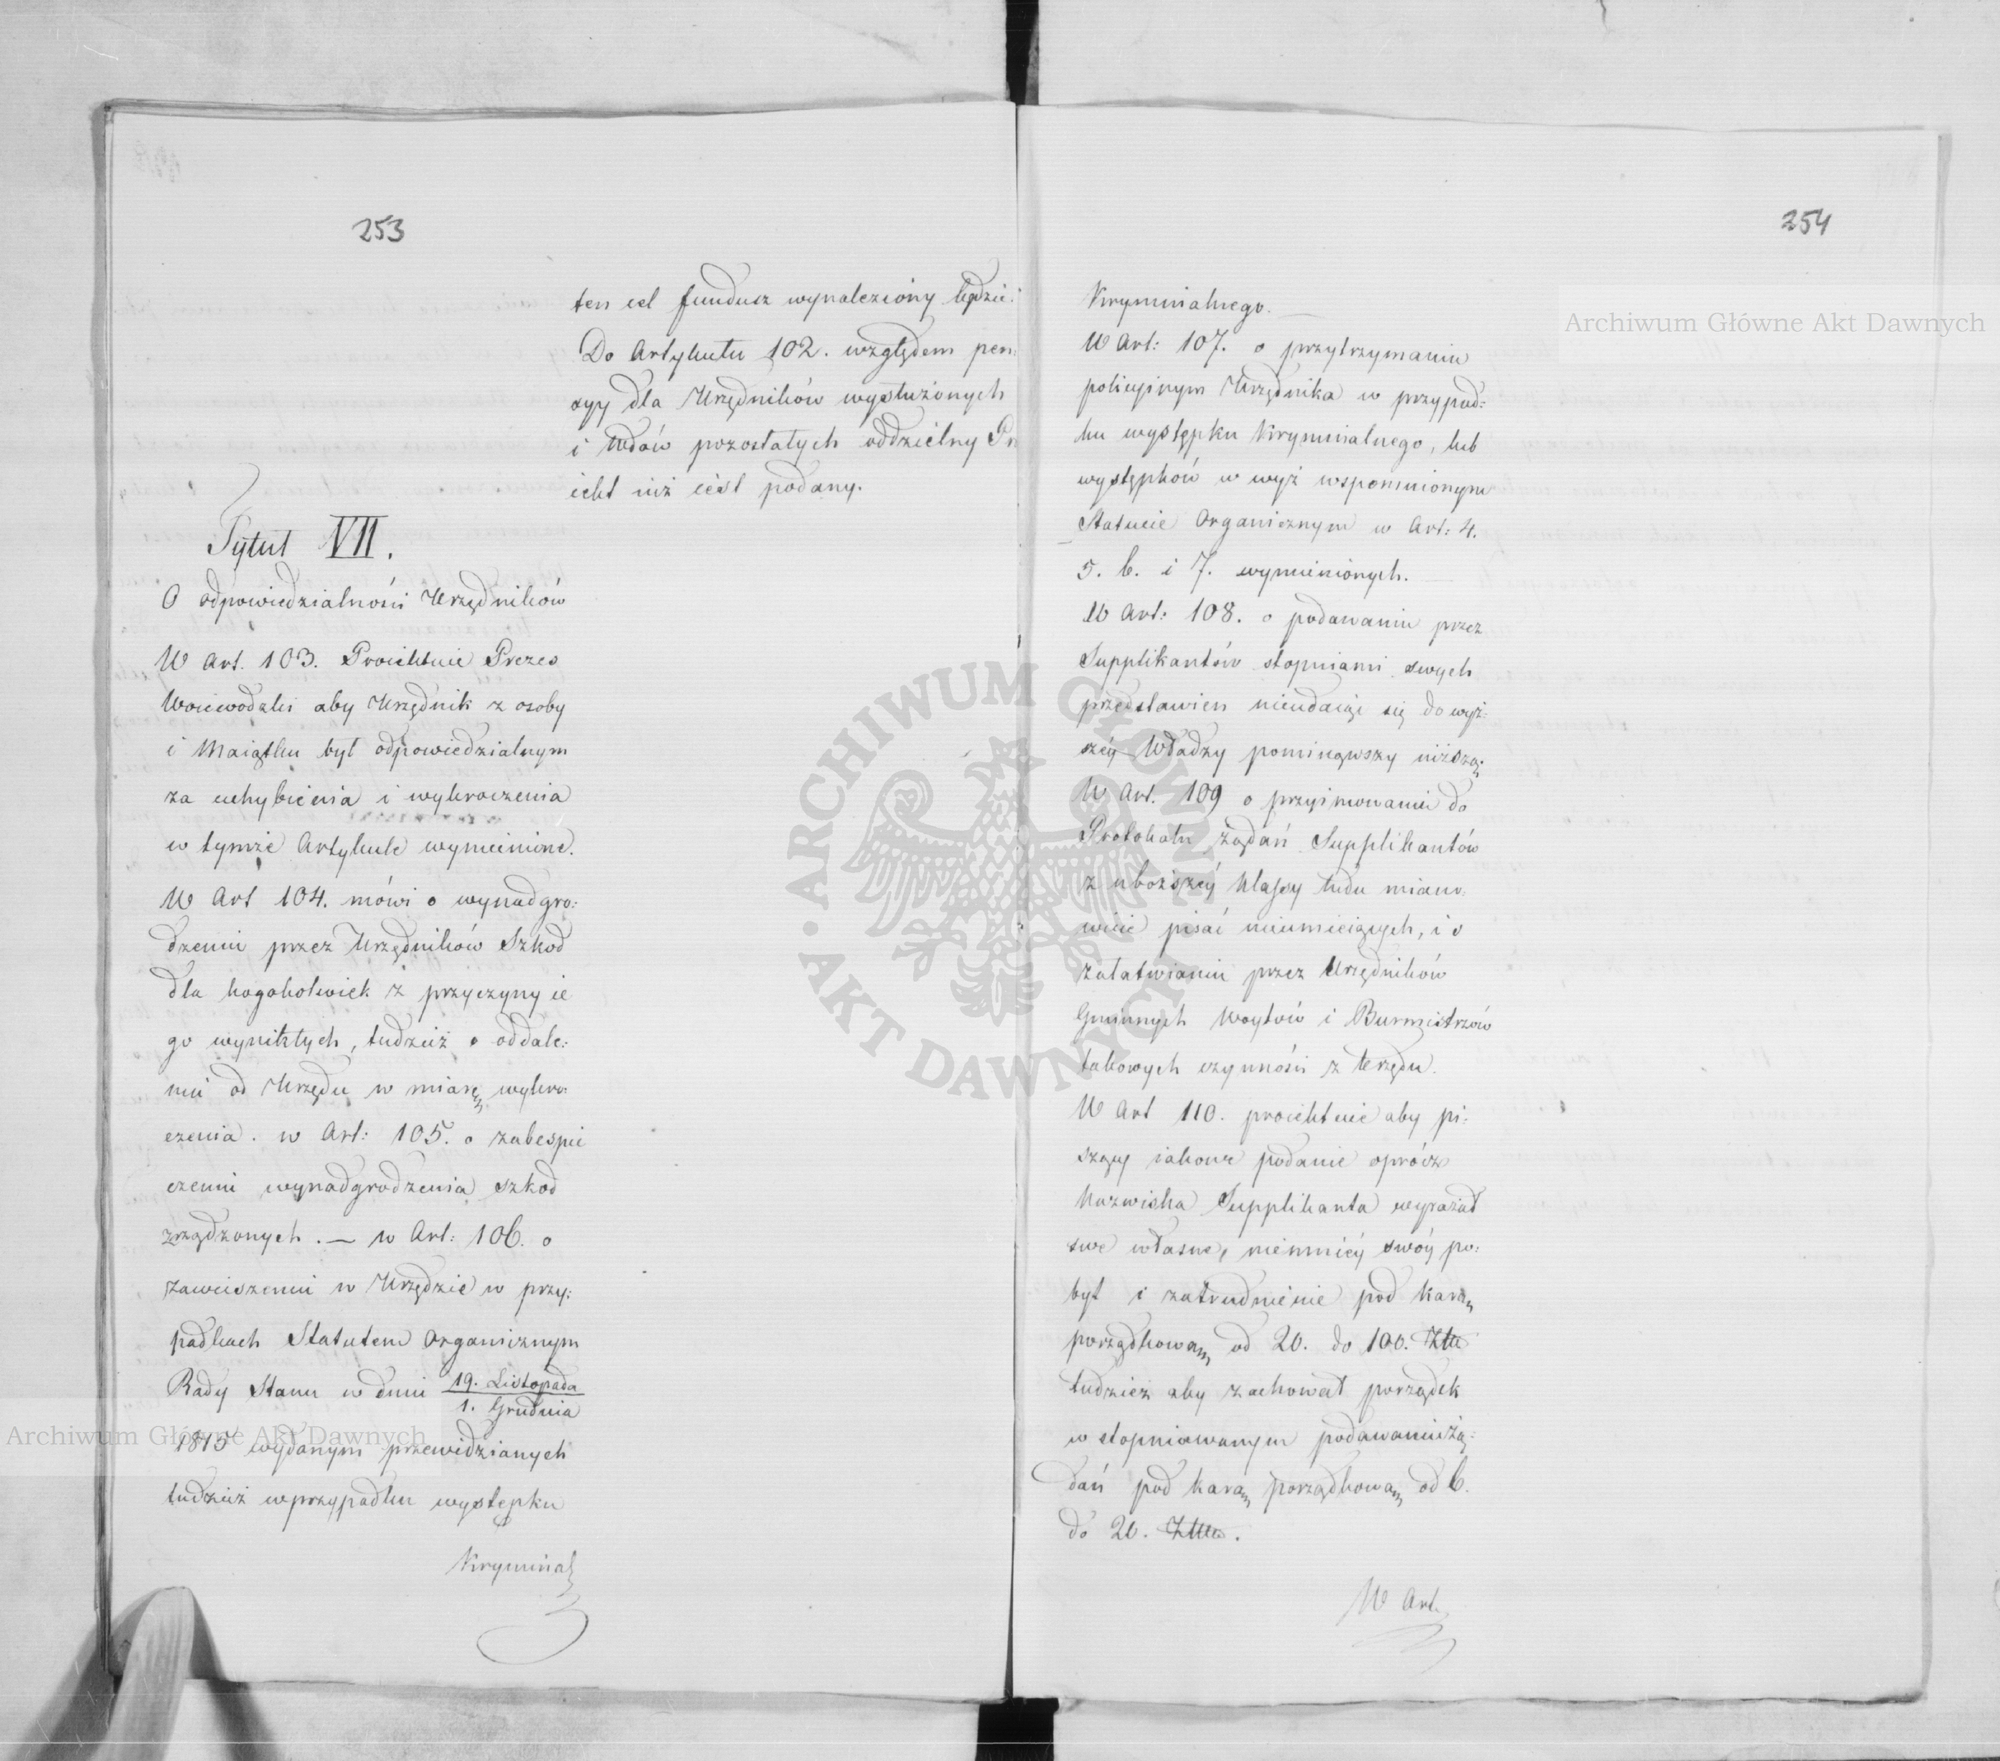 253
ten cel fundusz wynaleziony będzie.
Do Artykułu 102. względem pen:
syy dla Urzędników wysłużonych
i wdów pozostałych oddzielny Pro
iekt iuż iest podany.
Tytuł VII.
O odpowiedzialności Urzędników
W Art. 103. Proiektuie Prezes
Woiewodzki aby Urzędnik z osoby
i Maiątku był odpowiedzialnym
za uchybienia i wykroczenia
w tymże Artykule wymienione.
W Art 104. mówi o wynadgro:
dzeniu przez Urzędników Szkod
dla kogokolwiek z przyczyny ie
go wynikłych, tudzież o oddale:
niu od Urzędu w miarę wykro:
czenia. w Art: 105. o zabespie
czeniu wynadgrodzenia szkod
zrządzonych. — w Art: 106. o
zawieszeniu w Urzędzie w przy:
padkach Statutem Organicznym
Rady Stanu w dniu 19. Listopada
1. Grudnia
1815 wydanym przewidzianych
tudzież w przypadku występku
Kryminal
254
Kryminalnego.
W Art: 107. o przytrzymaniu
policyinym Urzędnika w przypad:
ku występku Kryminalnego, lub
występków w wyż wspomnionym
Statucie Organicznym w Art: 4.
5. 6. i 7. wymienionych.
W Art: 108. o podawaniu przez
Supplikantów stopniami swych
przedstawień nieudaiąc się do wyż:
széy Władzy pominąwszy niższą.
W Art. 109 o przyimowaniu do
Protokułu żądań Supplikantów
z uboższéy klassy ludu miano:
wicie pisać nieumieiących, i o
załatwianiu przez Urzędników
Gminnych Woytów i Burmistrzów
takowych czynności z Urzędu.
W Art 110. proiektuie aby pi:
szący iakowe podanie oprócz
Nazwiska Supplikanta wyrażał
swe własne, niemniéy swóy po:
byt i zatrudnienie pod karą
porządkową od 20. do 100. Złłł
tudzież aby zachował porządek
w stopniowanym podawaniu żą:
dań pod karą porządkową od 6.
do 20. Złłł.
W Art.
Archiwum Główne Akt Dawnych
Archiwum Główne Akt Dawnych
ARCHIWUM GŁÓWNE AKT DAWNYCH